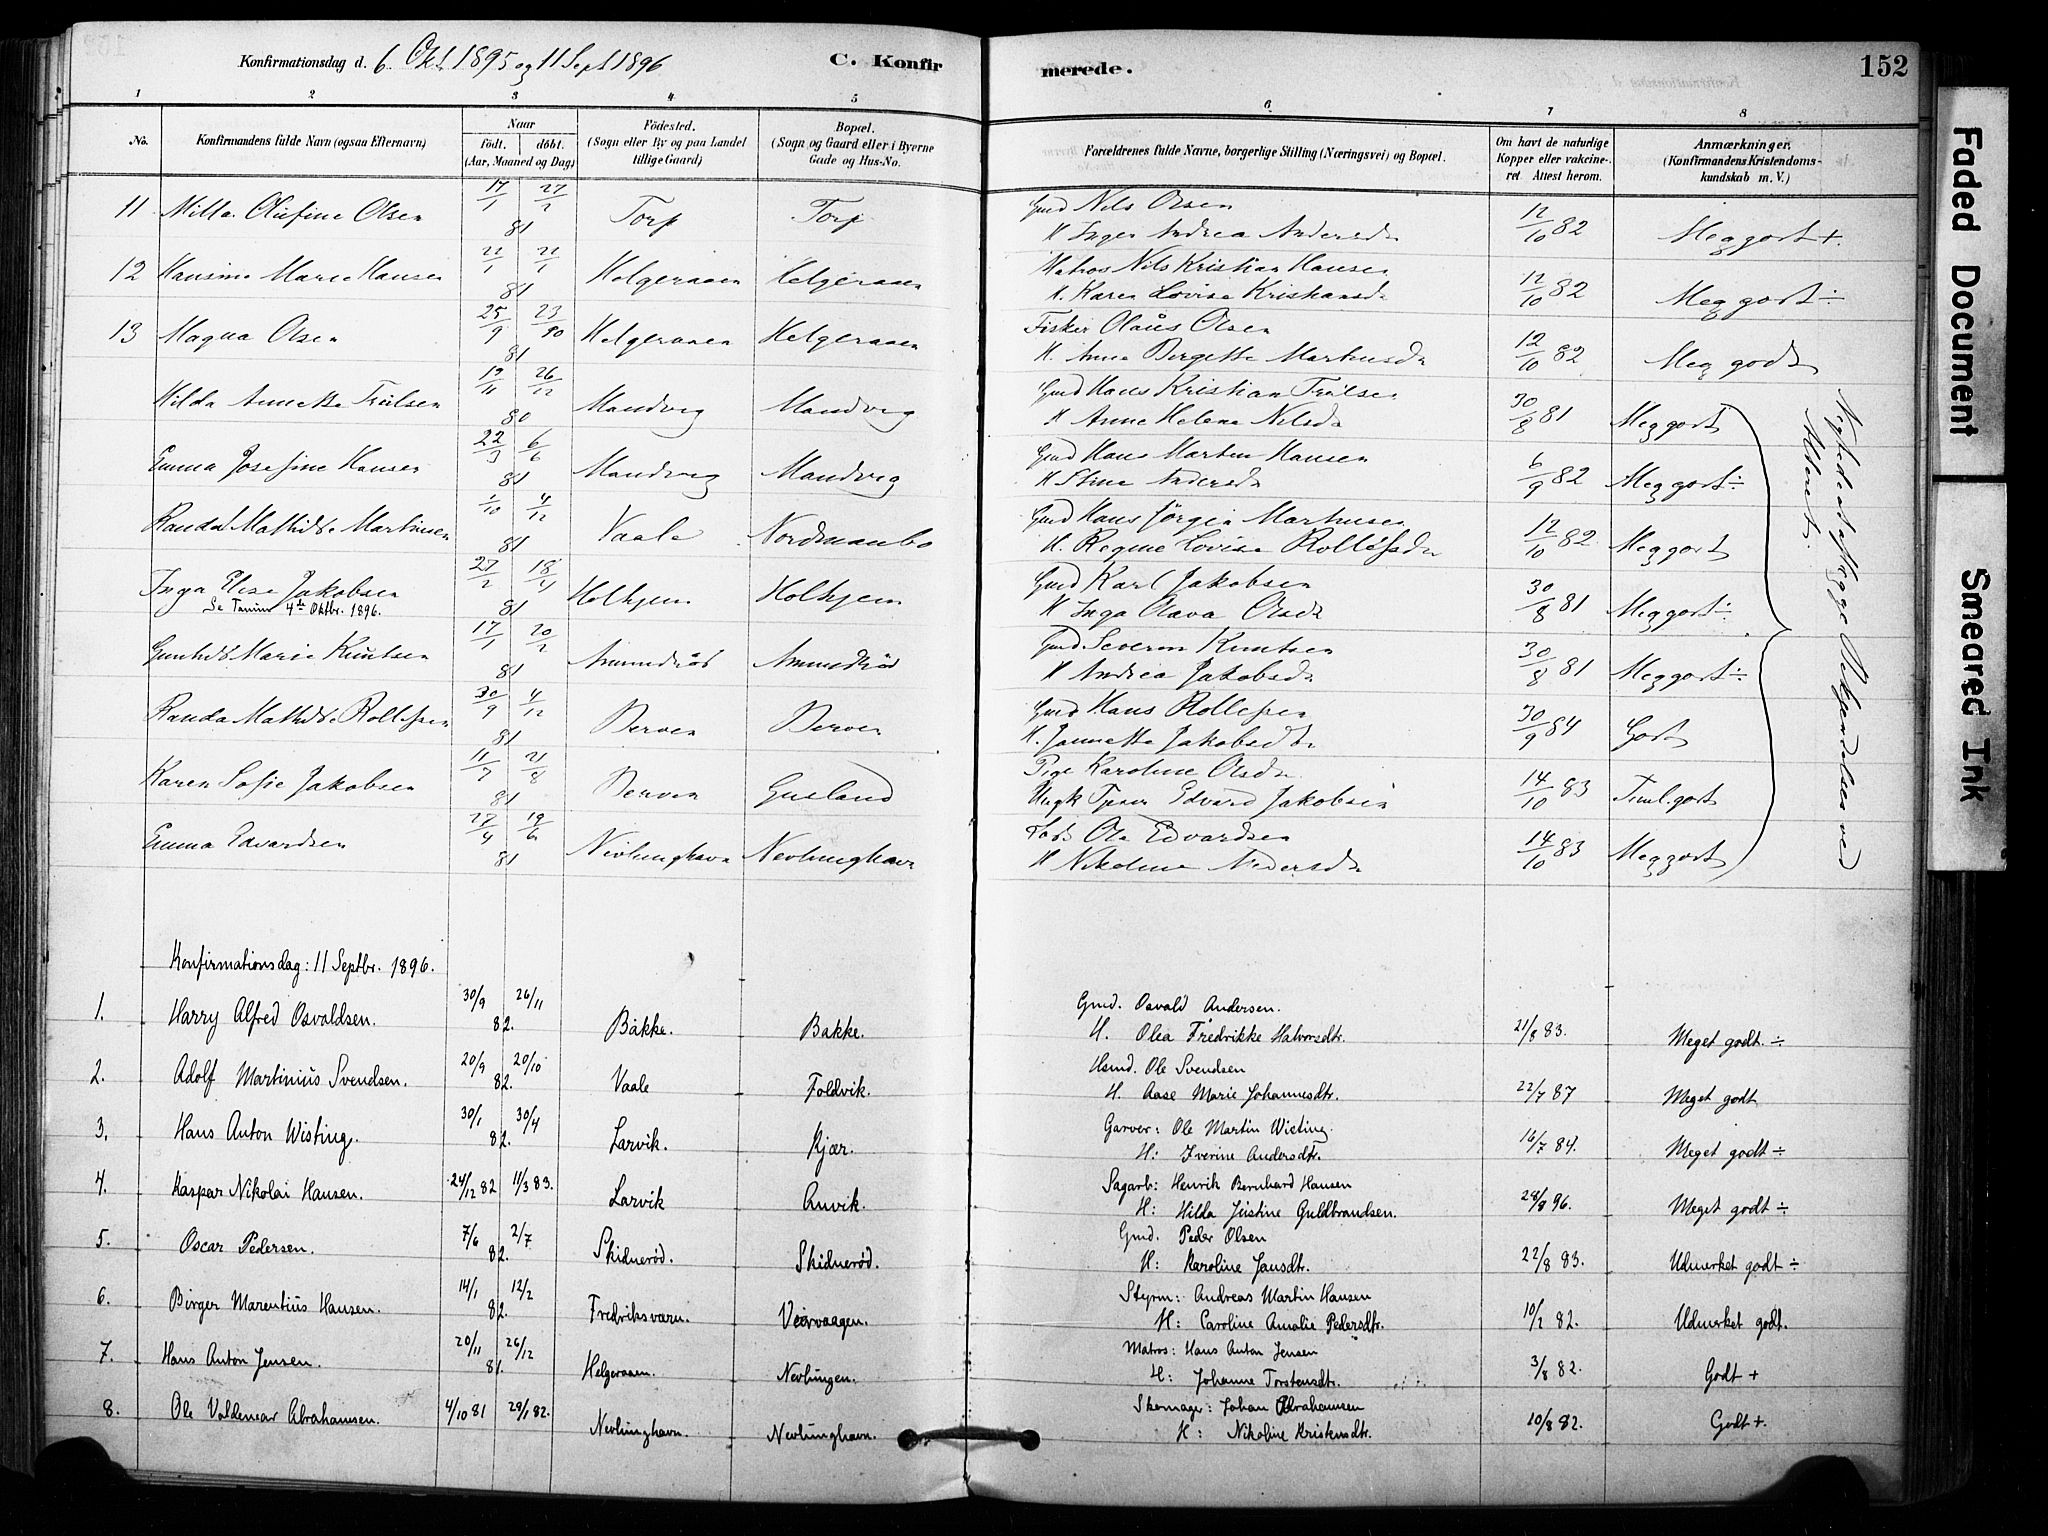 Konfirmationsdag d. 6. Okt. 1895 og 11 Sept 1896
C. Konfirmerede.
152
1 2 3 4 5 6 7 8
No.
Konfirmandens fulde Navn (ogsaa Efternavn)
Naar
födt. döbt.
(Aar, Maaned og Dag)
Födested.
(Sogn eller By og paa Landet tillige Gaard)
Bopæl.
(Sogn og Gaard eller i Byerne Gade og Hus-No.
Forældrenes fulde Navne, borgerlige Stilling (Næringsvei) og Bopæl.
Om havt de naturlige Kopper eller vakcineret. Attest herom.
Anmærkninger.
(Konfirmandens Kristendomskundskab m. V.)
11 Milla Olufine Olsen 17/1 27/2 81 Torp Torp Gmd Nils Olsen
H Inger Andrea Andersdr 12/10 82 Meg godt +.
12 Hansine Marie Hansen 21/1 81 Helgeraaen Helgeraaen Matros Nils Kristian Hansen
H. Karen Lovise Kristiansdr 12/10 82 Meg godt ÷
13 Magna Olsen 25/9 23/10 81 Helgeraaen Helgeraaen Fisker Olaus Olsen
H. Anne Bergette Martinsdr 12/10 82 Meg godt
Hilda Annette Trulsen 19/11 26/12 80 Mandvig Mandvig Gmd Hans Kristian Trulsen
H Anne Helene Nilsdr 30/8 81 Meg godt
Emma Josefine Hansen 22/3 6/6 81 Mandvig Mandvig Gmd Hans Martin Hansen
H Stine Andersdr 6/9 82 Meg godt ÷
Randa Mathilde Martinsen 1/10 4/12 81 Vaale Nordmanbo Gmd Hans Jörgen Martinsen
H. Regine Lovise Rollefsdr 12/10 82 Meg godt
Inga Elise Jakobsen 27/2 18/4 81 Holhjem Holhjem Gmd Karl Jakobsen
Se Tanum 4de Oktbr. 1896.
H Inga Olava Olsdr 30/8 81 Meg godt ÷
Gunhild Marie Knutsen 17/1 20/2 81 Amundröd Amundröd Gmd Severin Knutsen
H Andrea Jakobsdr 30/8 81 Meg godt ÷
Randa Mathilde Rollefsen 30/9 4/12 81 Berven Berven Gmd Hans Rollefsen
H. Jannette Jakobsdtr 30/9 84 Godt
Karen Sofie Jakobsen 11/7 21/8 81 Berven Gusland Pige Karoline Olsdr
Ungk Edvard Jakobsen 14/10 83 Teml. godt
Emma Edvardsen 27/4 19/6 81 Nevlunghavn Nevlunghavn Lods Ole Edvardsen
H Nikoline Pedersdr 14/10 83 Meg godt
Alteret.
Konfirmationsdag: 11 Septbr. 1896.
1. Harry Alfred Osvaldsen. 30/9 26/11 82. Bakke. Bakke. Gmd. Osvald Andersen.
H. Olea Fredrikke Halvorsdtr. 21/8 83. Meget godt. ÷
2. Adolf Martinius Svendsen. 20/9 20/10 82. Vaale Foldvik. Hsmd. Ole Svendsen
H. Aase Marie Johannesdtr. 22/7 87 Meget godt
3. Hans Anton Wisting. 30/1 30/4 82. Larvik. Kjær. Garver: Ole Martin Wisting.
H: Iverine Andersdtr. 16/7 84. Meget godt ÷
4. Kaspar Nikolai Hansen. 24/12 82 11/3 83. Larvik Anvik. Sagarb: Henrik Bernhard Hansen
H: Hilda Justine Guldbrandsen. 28/8 96. Meget godt ÷
5. Oscar Pedersen. 7/6 2/7 82. Skidneröd. Skidneröd. Gmd. Peder Olsen
H: Karoline Jansdtr. 22/8 83. Udmerket godt ÷
6. Birger Marentius Hansen. 14/1 12/2 82. Fredriksværn. Veirvaagen. Styrm: Andreas Martin Hansen
H: Caroline Amalie Pedersdtr. 10/2 82. Udmerket godt.
7. Hans Anton Jensen. 20/11 26/12 81. Helgeraaen. Nevlungen. Matros: Hans Anton Jensen
H: Johanne Torstensdtr. 3/8 82. Godt +
8. Ole Valdemar Abrahamsen. 4/10 81 29/1 82. Nevlunghavn. Nevlunghavn. Skomager: Johan Abrahamsen
H: Nikoline Kristensdtr. 10/8 82. Godt +.
Faded Document
Smeared Ink